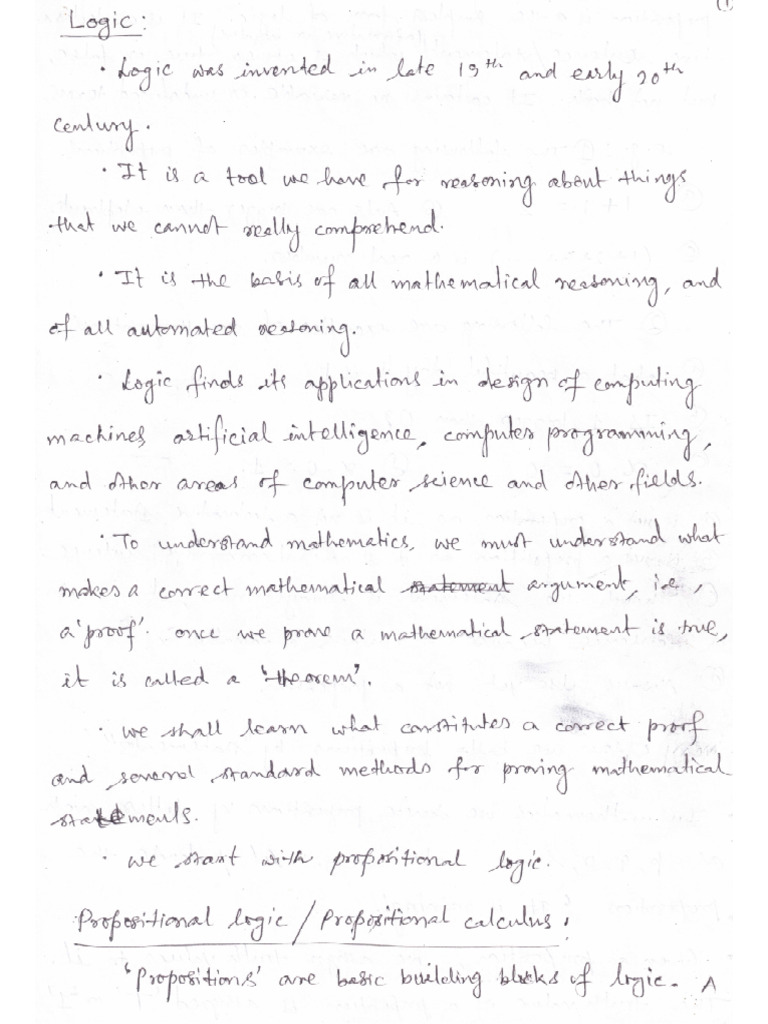 (1)
Logic:
· Logic was invented in late 19th and early 20th
century.
· It is a tool we have for reasoning about things
that we cannot really comprehend.
· It is the basis of all mathematical reasoning, and
of all automated reasoning.
· Logic finds its applications in design of computing
machines, artificial intelligence, computer programming,
and other areas of computer science and other fields.
· To understand mathematics, we must understand what
makes a correct mathematical statement argument, i.e.,
a 'proof'. once we prove a mathematical statement is true,
it is called a 'theorem'.
· we shall learn what constitutes a correct proof
and several standard methods for proving mathematical
statements.
· we start with propositional logic.
Propositional logic / Propositional calculus:
'Propositions' are basic building blocks of logic. A